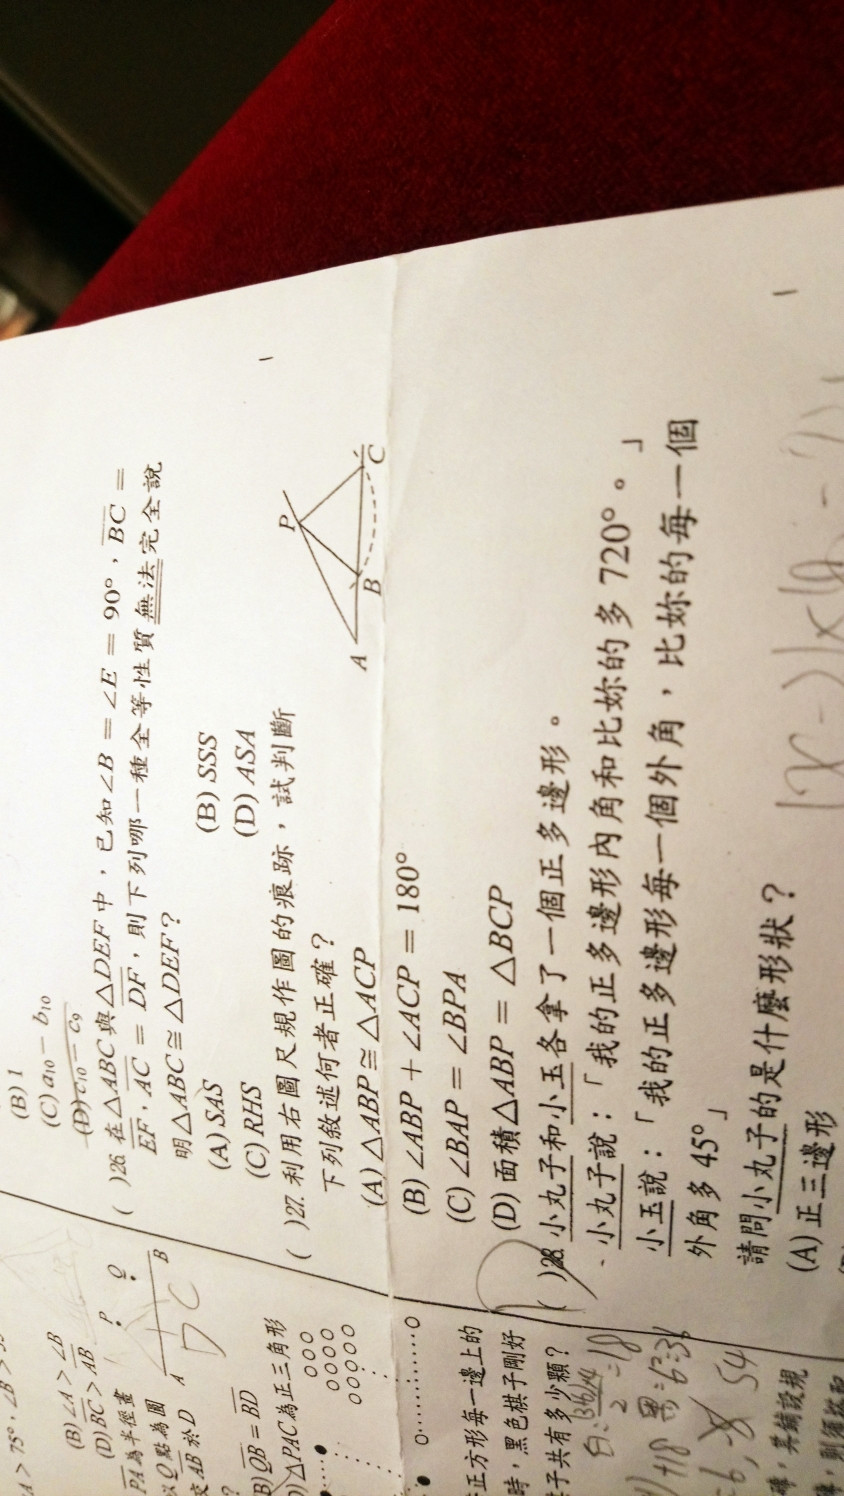 (B) 1
(C) a₁₀ − b₁₀
(D) c₁₀ − c₉
( )26. 在△ABC與△DEF中，已知∠B = ∠E = 90°，BC =
EF，AC = DF，則下列哪一種全等性質無法完全說
明△ABC≅△DEF？
(A) SAS (B) SSS
(C) RHS (D) ASA
( )27. 利用右圖尺規作圖的痕跡，試判斷
下列敘述何者正確？
(A) △ABP≅△ACP
(B) ∠ABP + ∠ACP = 180°
(C) ∠BAP = ∠BPA
(D) 面積△ABP = △BCP
P
A B C
( )28. 小丸子和小玉各拿了一個正多邊形。
小丸子說：「我的正多邊形內角和比妳的多 720°。」
小玉說：「我的正多邊形每一個外角，比妳的每一個
外角多 45°」
請問小丸子的是什麼形狀？
(A) 正三邊形
75°，∠B >
(B) ∠A > ∠B
(D) BC > AB
PA為半徑畫
以Q點為圓
交AB於D
P Q
A B
(B) QB = BD
△PAC為正三角形
正方形每一邊上的
時，黑色棋子剛好
子共有多少顆？
54